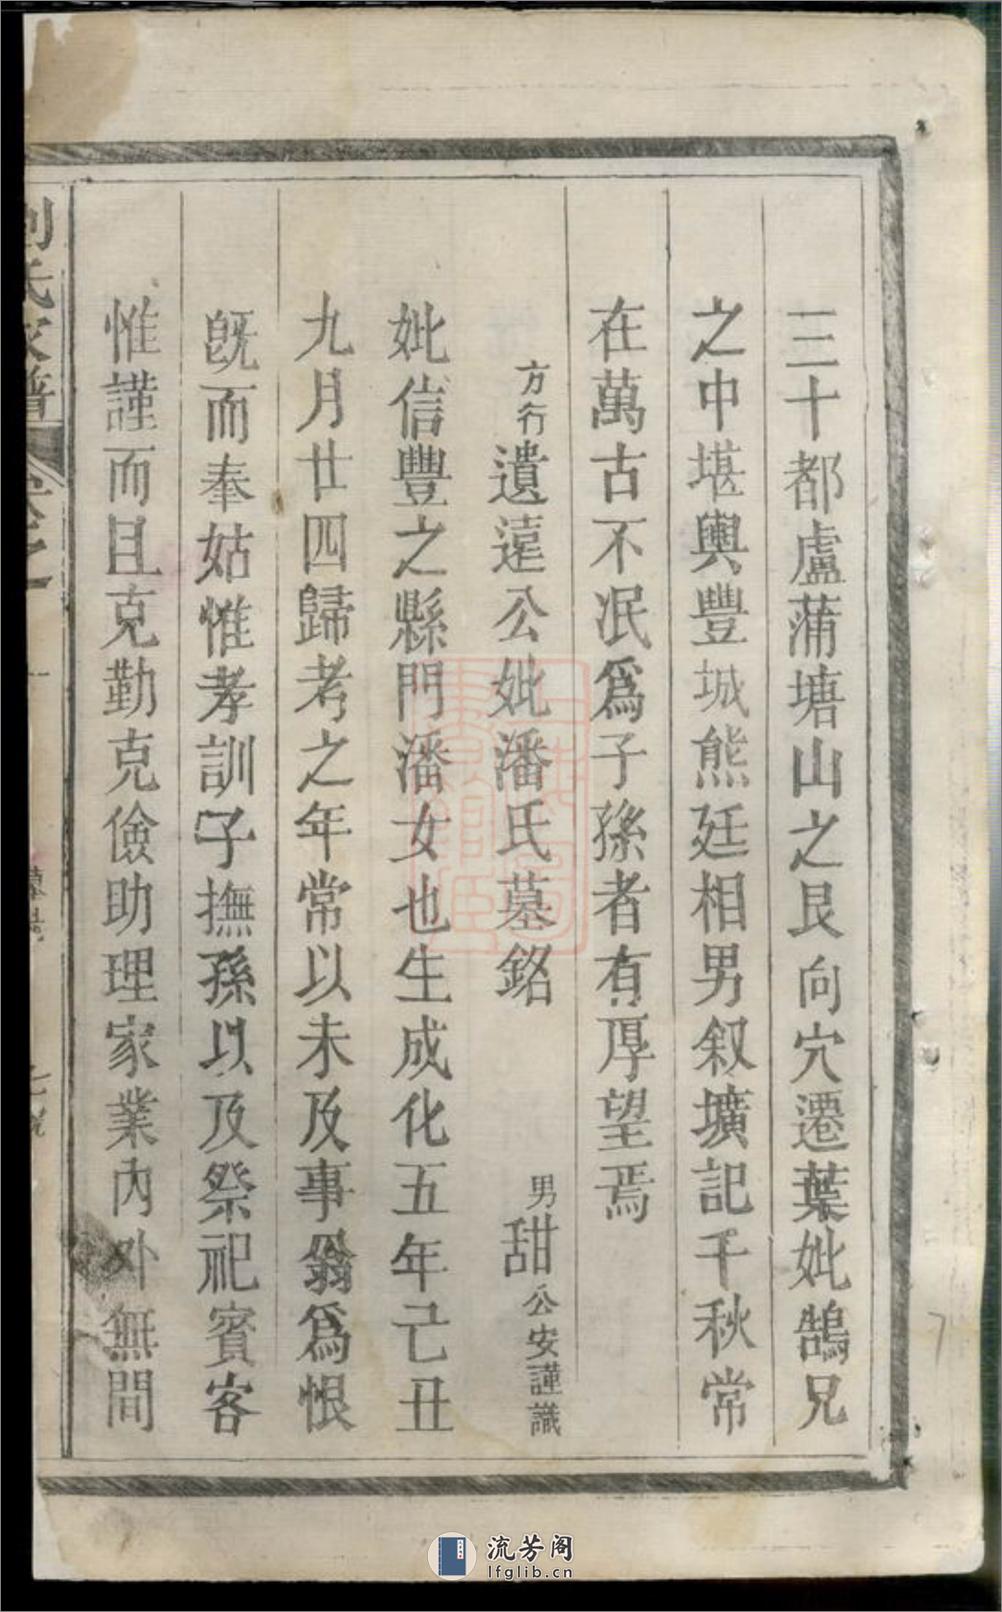 三十都盧蒲塘山之艮向穴遷葉妣鵠兄
之中堪輿豐城熊廷相男叙壙記千秋常
在萬古不泯爲子孫者有厚望焉
方行遺遠公妣潘氏墓銘 男甜公安謹識
妣信豐之縣門潘女也生成化五年己丑
九月廿四歸考之年常以未及事翁爲恨
旣而奉姑惟孝訓子撫孫以及祭祀賓客
惟謹而且克勤克儉助理家業內外無間
劉氏家譜 卷之
流芳阁
lfglib.cn